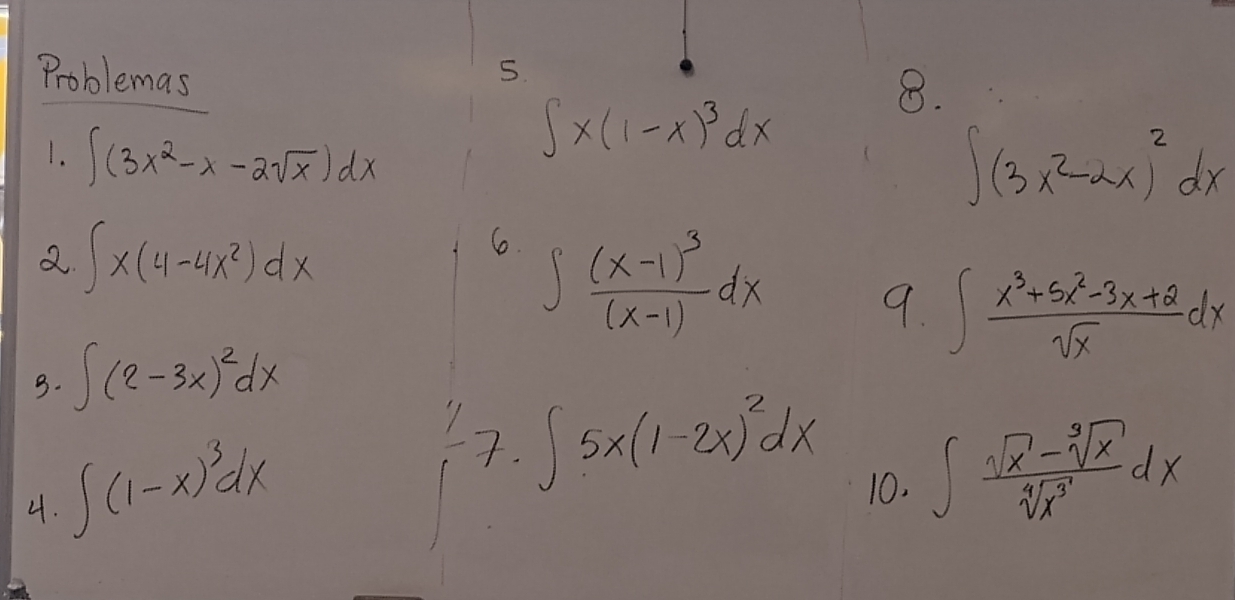 Problemas
1. ∫(3x²-x-2√x)dx
2. ∫x(4-4x²)dx
3. ∫(2-3x)²dx
4. ∫(1-x)³dx
5.
∫x(1-x)³dx
6. ∫(x-1)³/(x-1) dx
7. ∫5x(1-2x)²dx
8.
∫(3x²-2x)²dx
9. ∫(x³+5x²-3x+2)/√x dx
10. ∫(√x-∛x)/∜x³ dx